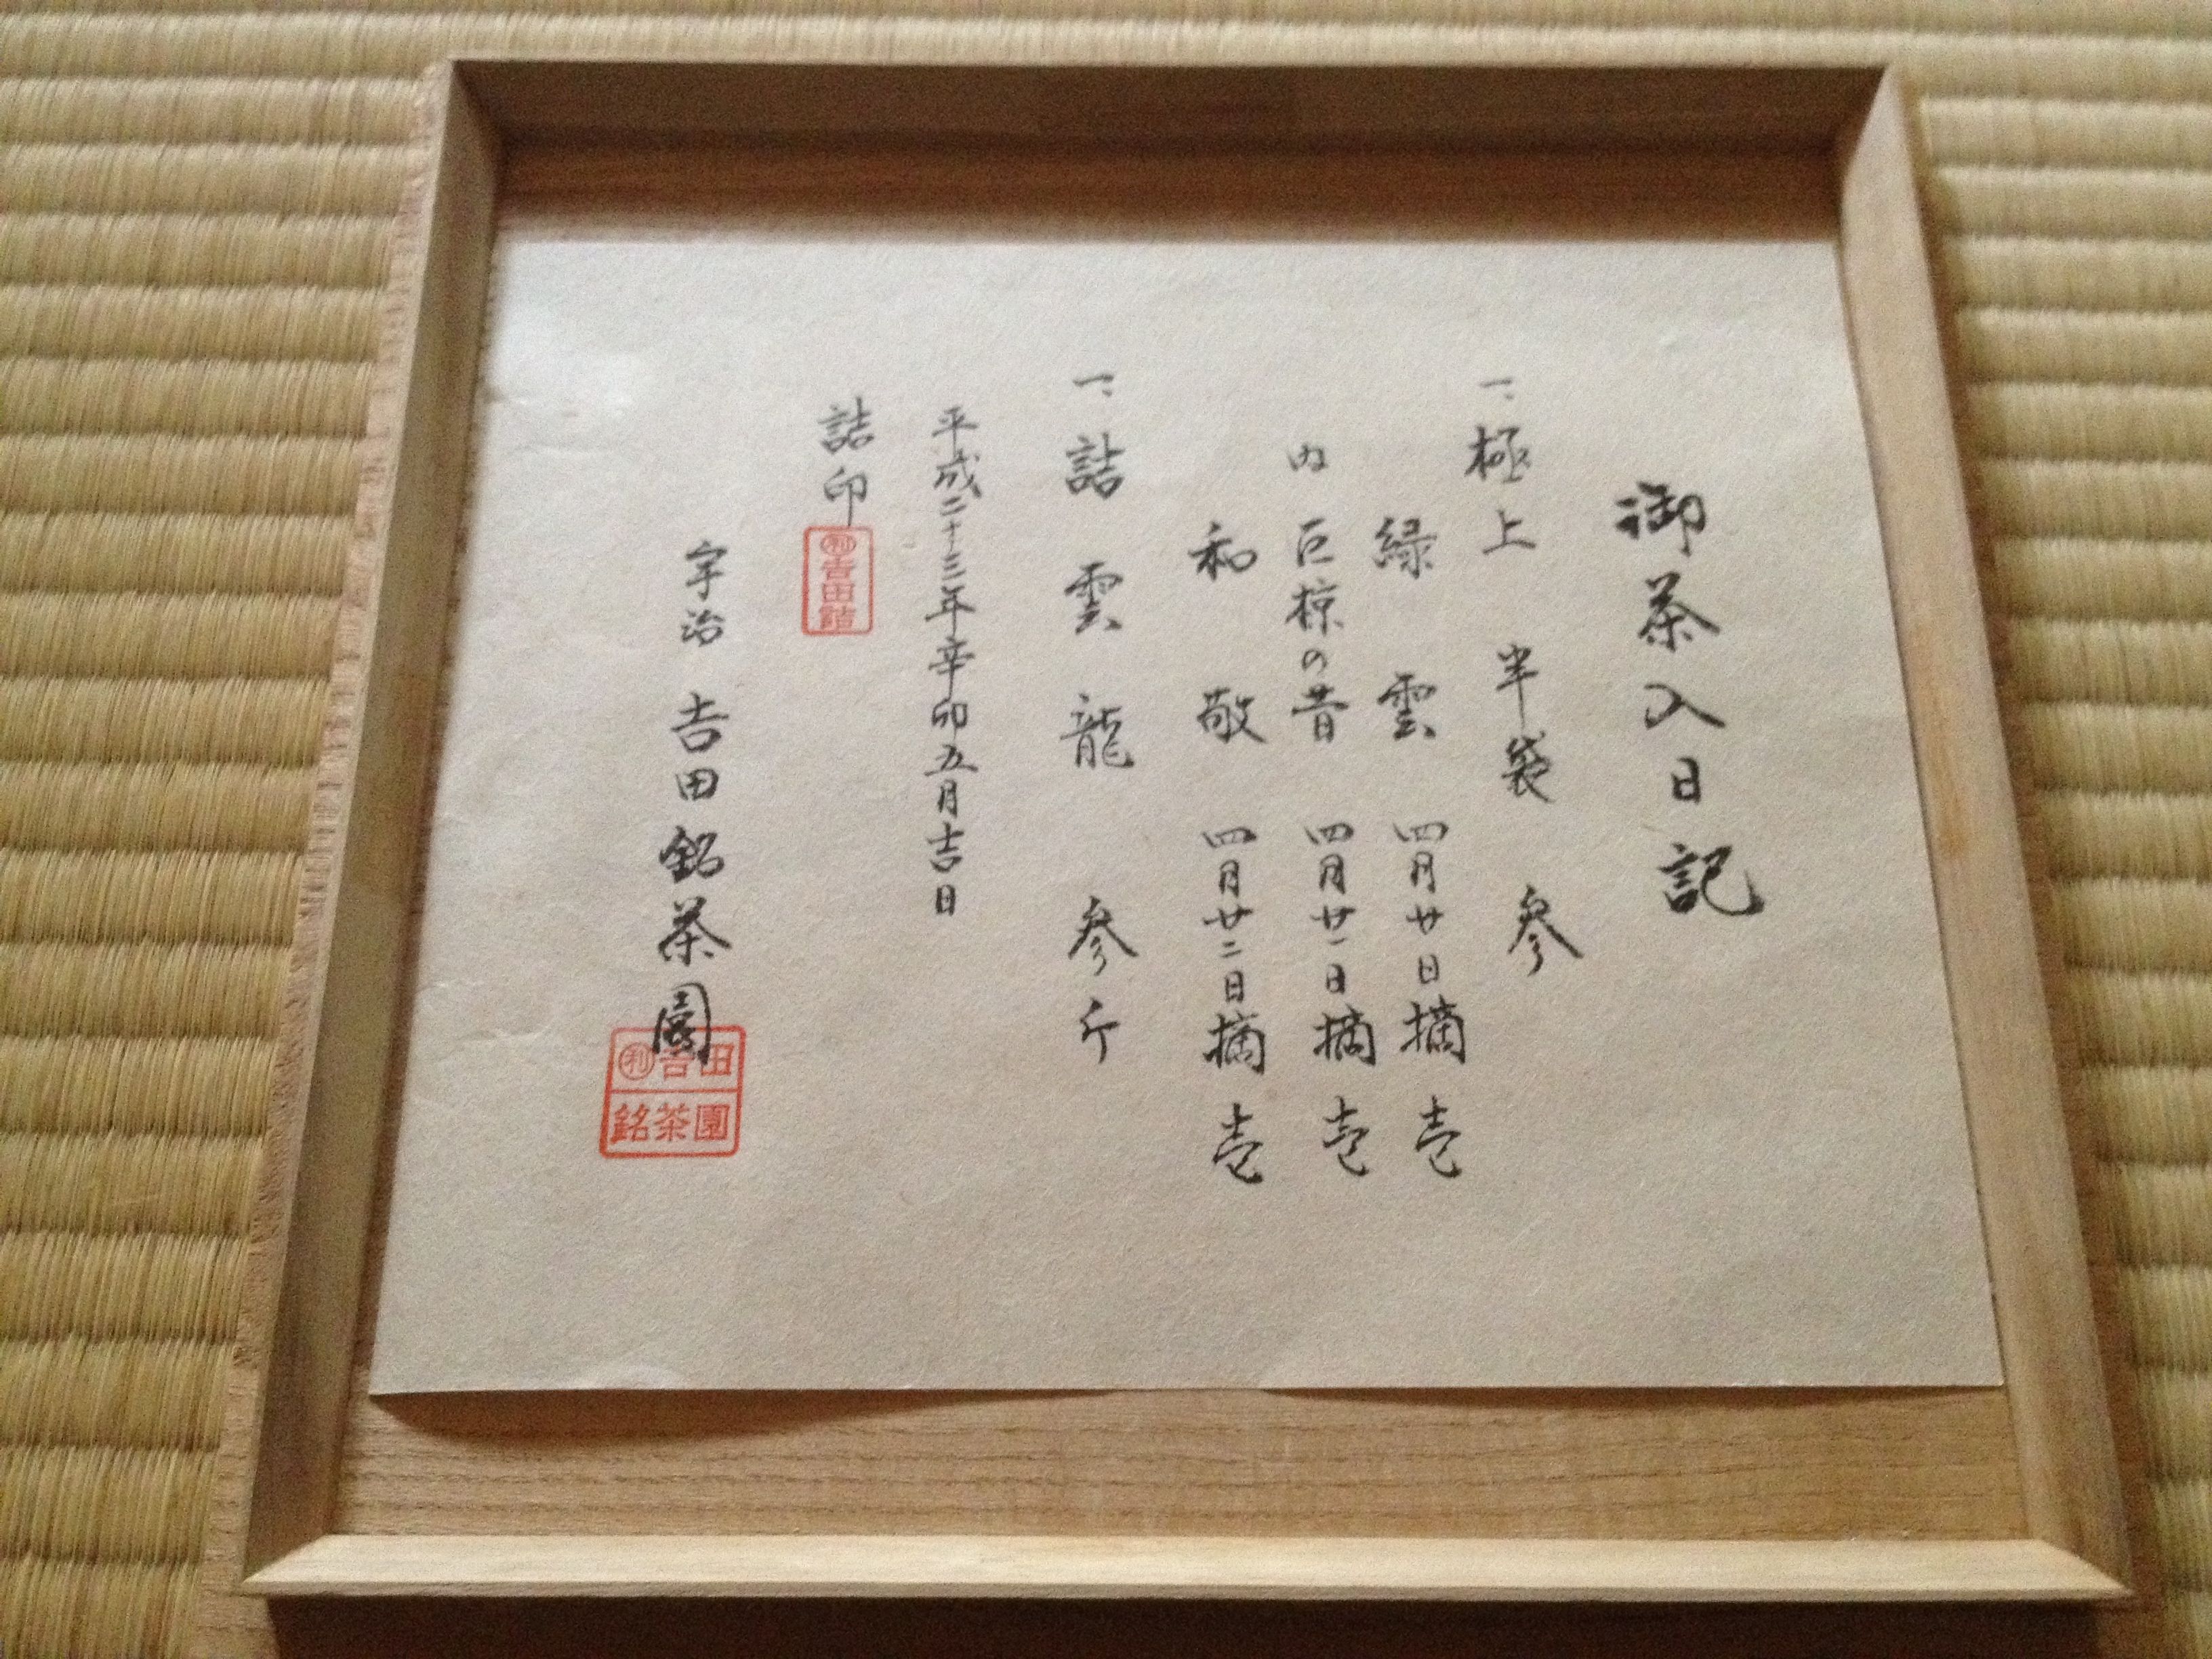 御茶入日記
一、極上 半袋 参
緑雲 四月廿日摘 壱
内 巨椋の昔 四月廿一日摘 壱
和敬 四月廿二日摘 壱
一、詰 雲龍 参斤
平成二十三年辛卯五月吉日
詰印
利吉田詰
宇治 吉田銘茶園
利吉田
銘茶園